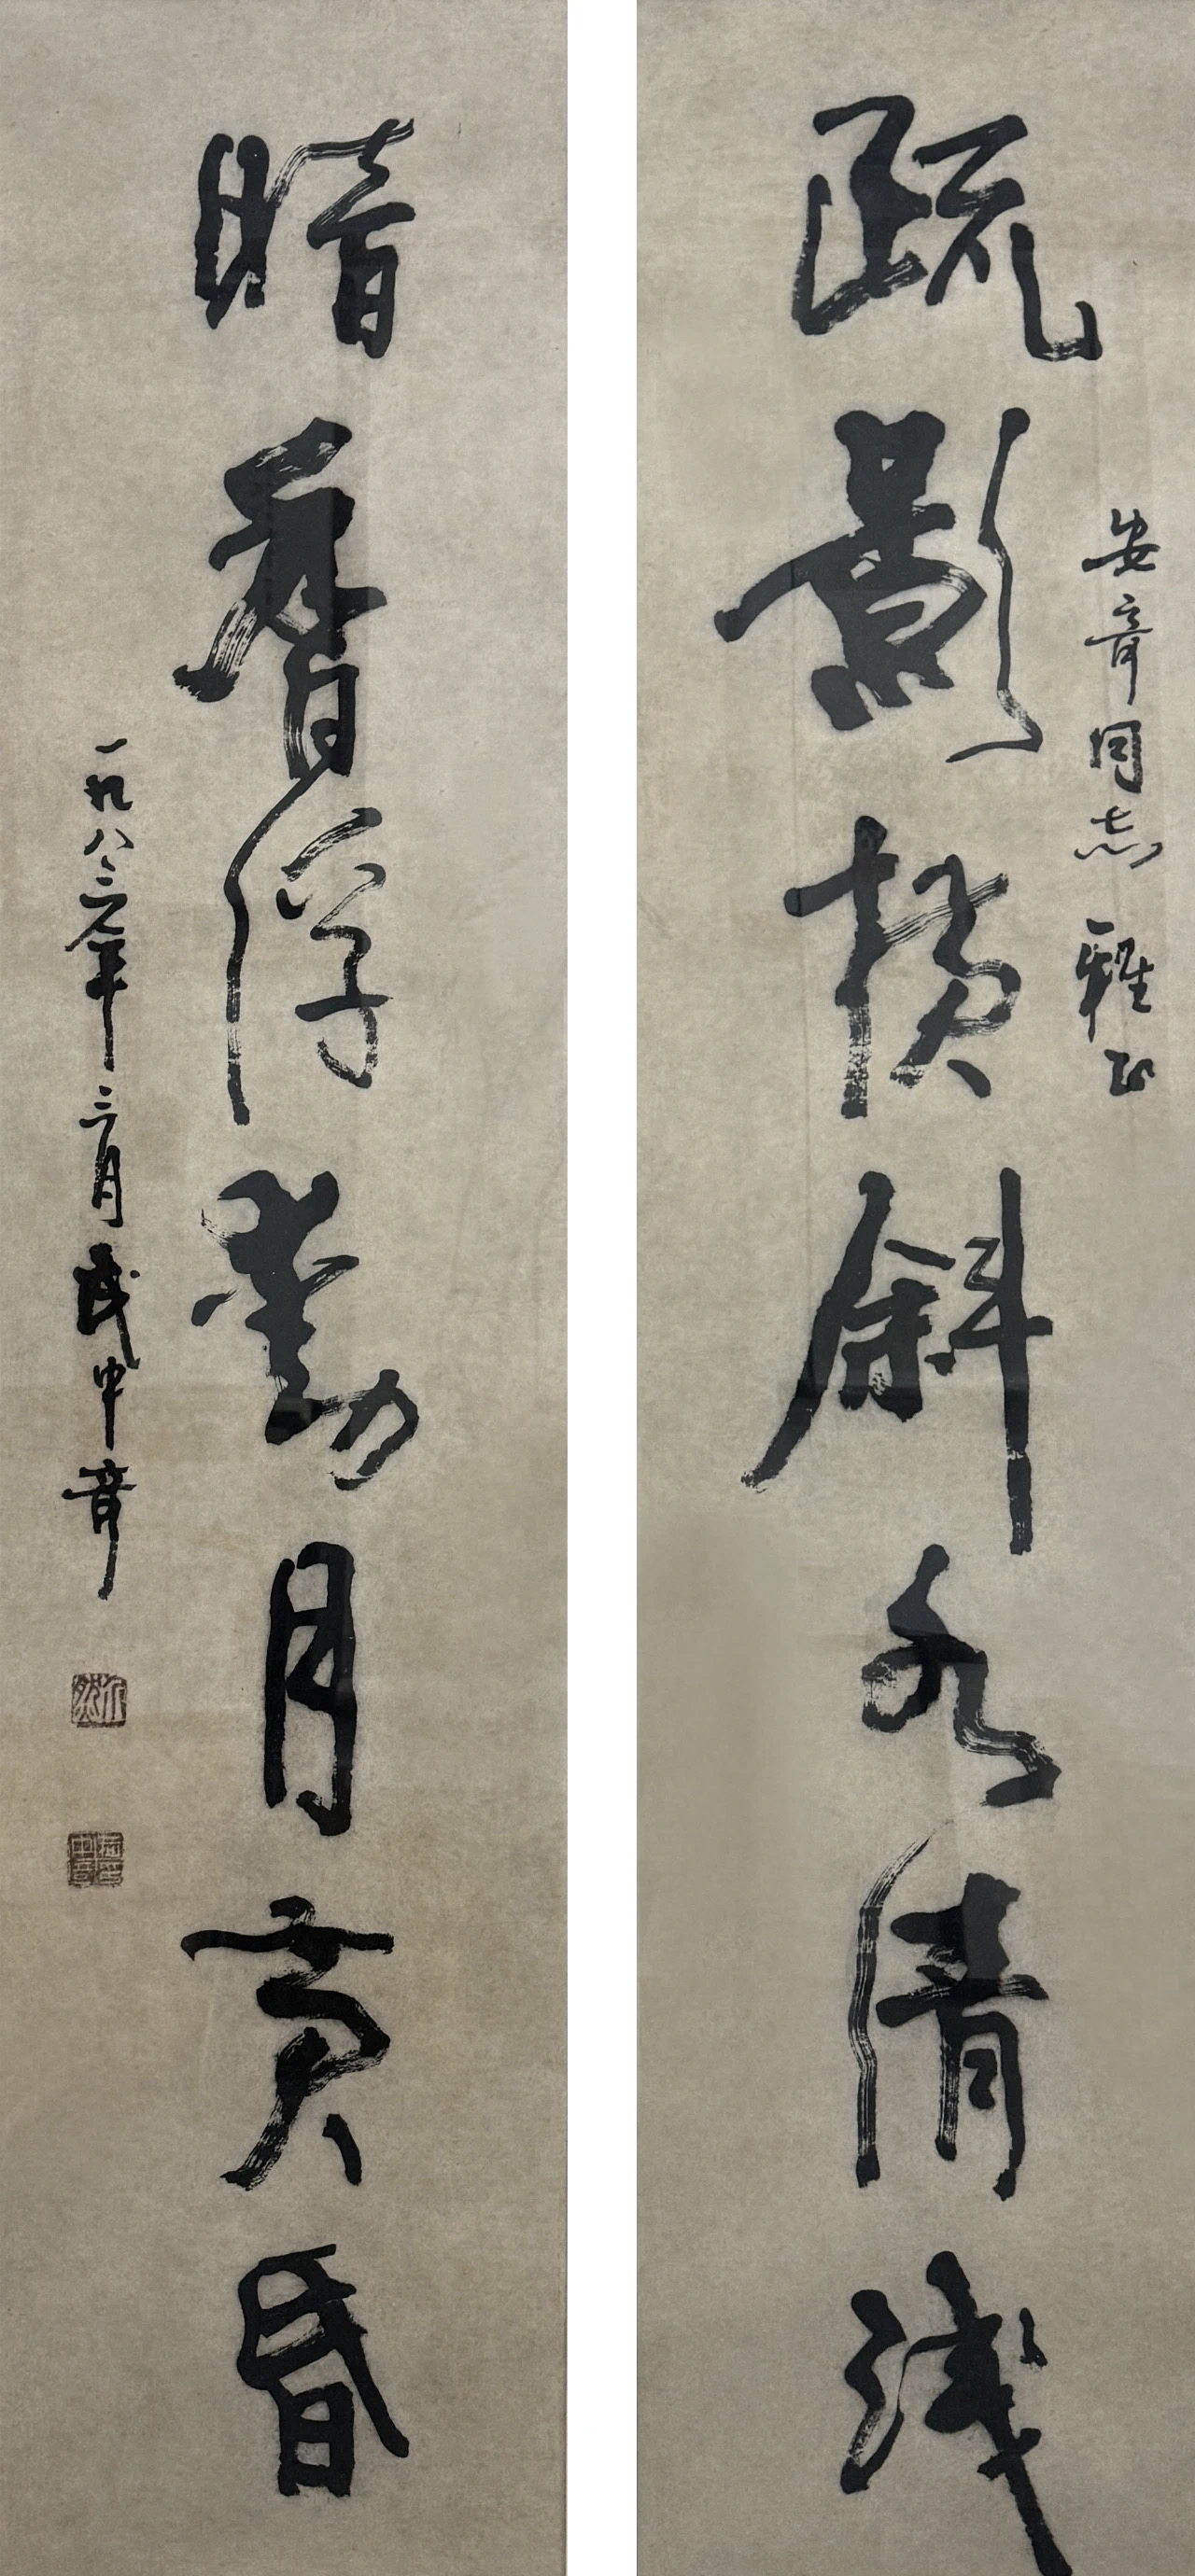 安章同志 雅正
疏影横斜水清浅
暗香浮動月黄昏
一九八三年三月 武中奇